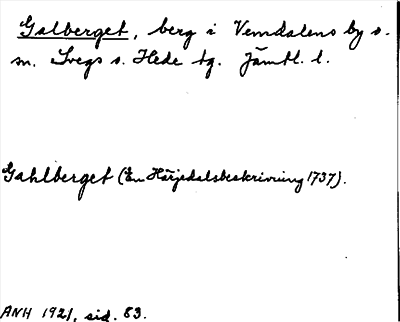 Galberget, berg i Vemdalens by o.
sn. Svegs s. Hede tg. Jämtl. l.
Gahlberget (En Härjedalsbeskrivning 1737).
ANH 1921, sid. 83.